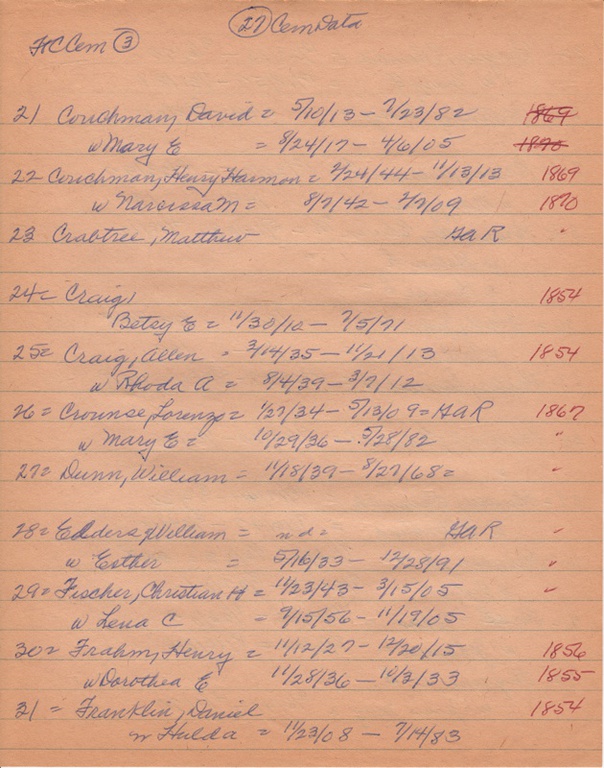 (27) Cem Data
HC Cem (3)
21 Couchman, David = 5/10/13 - 7/23/82 1869
w Mary E = 8/24/17 - 4/6/05 1870
22 = Couchman, Henry Harmon = 2/24/44 - 11/13/13 1869
w Narcissa M = 8/7/42 - 2/7/09 1870
23 Crabtree, Matthew GAR "
24 = Craig, 1854
Betsy E = 11/30/10 - 7/5/71
25 = Craig, Allen = 3/14/35 - 11/21/13 1854
w Rhoda A = 8/4/39 - 3/7/12
26 = Crounse, Lorenzo = 1/27/34 - 5/13/09 = GAR 1867
w Mary E = 10/29/36 - 5/28/82 "
27 = Dunn, William = 11/18/39 - 8/27/68 = "
28 = Edders, William = nd = GAR "
w Esther = 5/16/33 - 12/28/91 "
29 = Fischer, Christian H = 11/23/43 - 3/15/05 "
w Lena C = 9/15/56 - 11/19/05
30 = Frahm, Henry = 11/12/27 - 12/20/15 1856
w Dorothea E 11/28/36 - 10/3/33 1855
31 = Franklin, Daniel 1854
w Hulda = 11/23/08 - 7/14/83